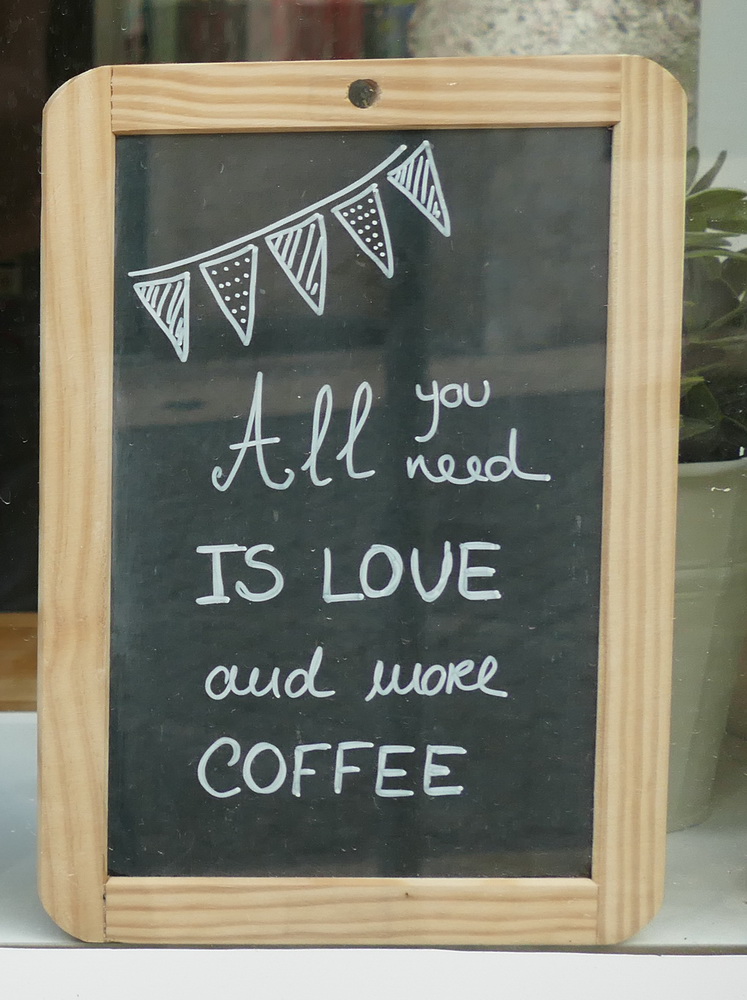 All you need
IS LOVE
and more
COFFEE